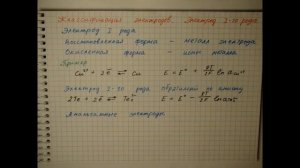 Классификация электродов. Электрод I-го рода
Электрод I рода
Восстановленная форма - металл электрода
Окисленная форма - ионы металла
Пример
Cu²⁺ + 2ē ⇄ Cu E = E° + RT/2F ln a Cu²⁺
Электрод I-го рода обратимый по аниону
E = E° - RT/2F ln a
Амальгамные электроды